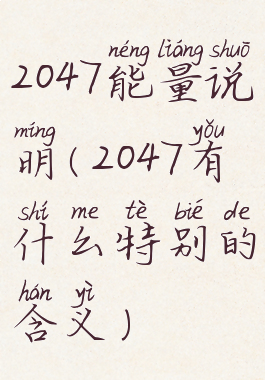 néng liáng shuō
2047能量说
míng yǒu
明(2047有
shí me tè bié de
什么特别的
hán yì
含义)